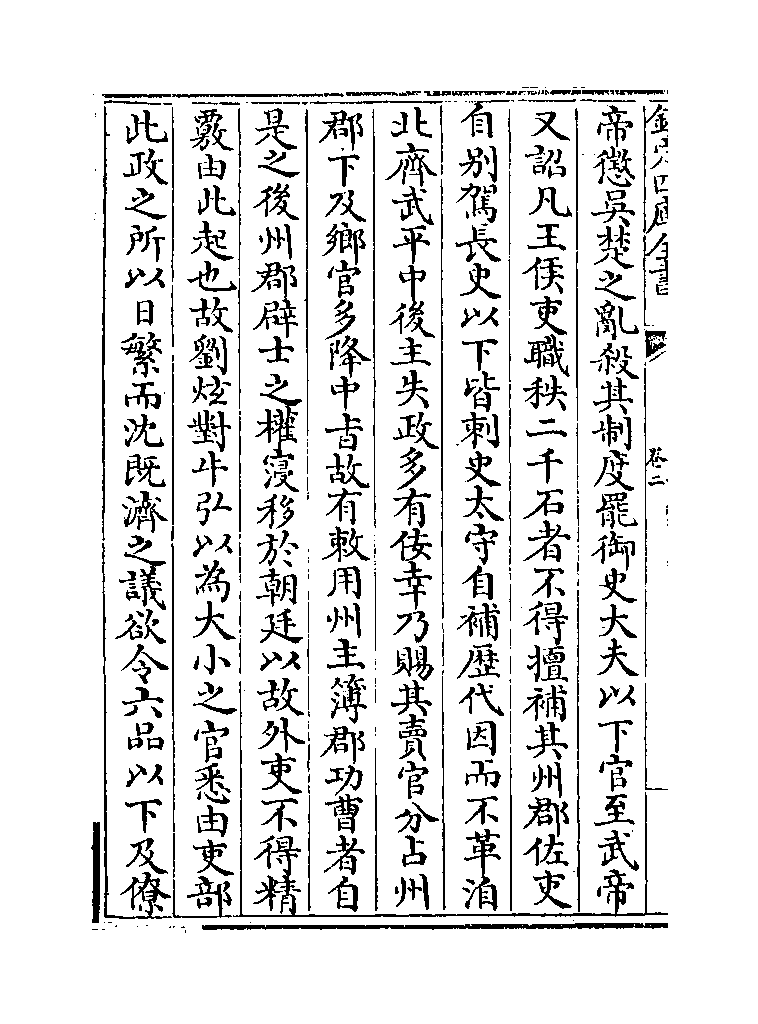 欽定四庫全書
卷二
帝懲吳楚之亂殺其制度罷御史大夫以下官至武帝
又詔凡王侯吏職秩二千石者不得擅補其州郡佐吏
自别駕長史以下皆刺史太守自補歴代因而不革洎
北齊武平中後主失政多有佞幸乃賜其賣官分占州
郡下及鄉官多降中㫖故有敕用州主簿郡功曹者自
是之後州郡辟士之權寖移於朝廷以故外吏不得精
覈由此起也故劉炫對牛弘以為大小之官悉由吏部
此政之所以日繁而沈既濟之議欲令六品以下及僚